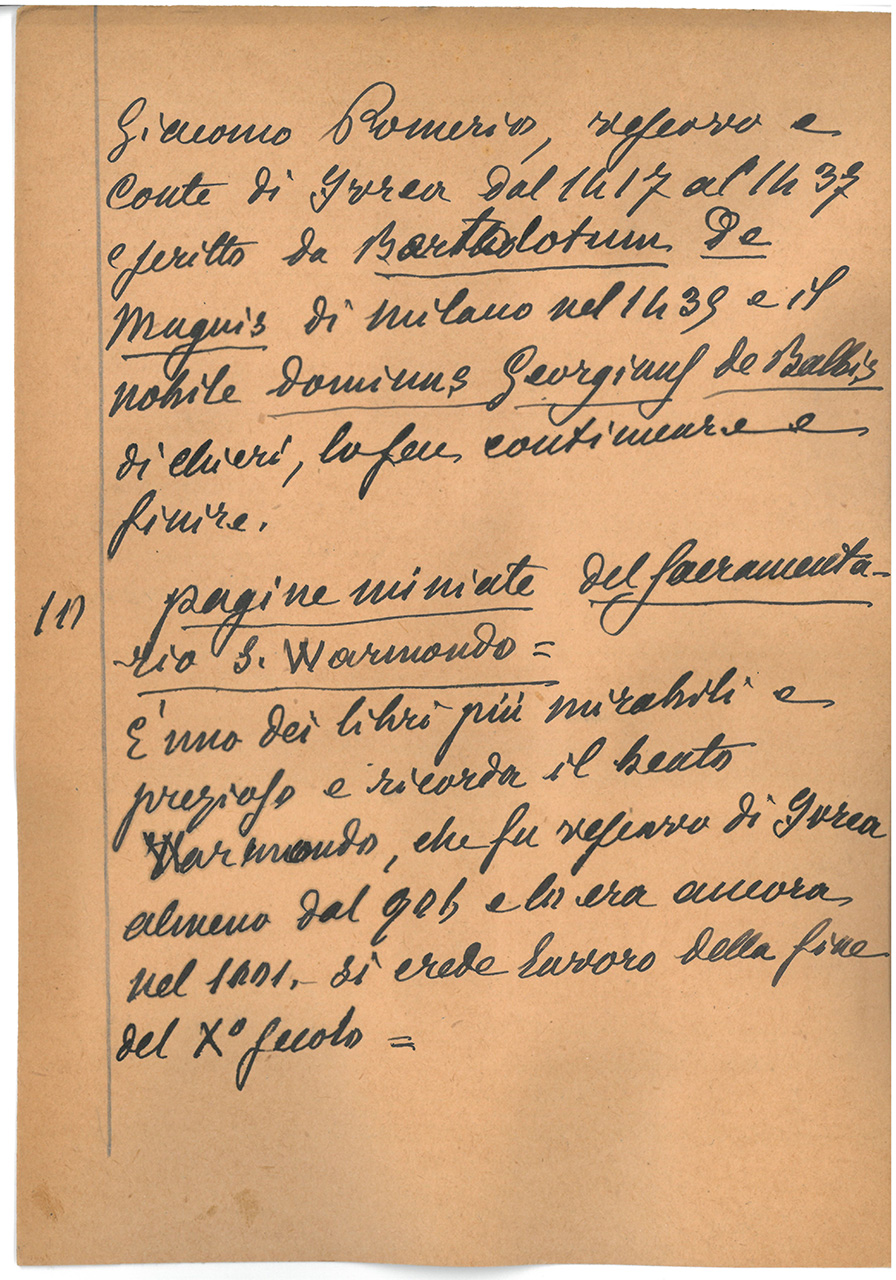 Giacomo Pomerio, vescovo e
Conte di Ivrea dal 1417 al 1439
e scritto da Bartholotum De
Magnis di Milano nel 1439 e il
nobile dominus Georgius de Balbis
di Chieri, lo feu continuare e
finire.
10 pagine miniate del Sacramenta-
rio S. Warmondo =
E' uno dei libri più mirabili e
prezioso e ricorda il beato
Warmondo, che fu vescovo di Ivrea
almeno dal e lo era ancora
nel 1001.- Si crede lavoro della fine
del X° secolo =